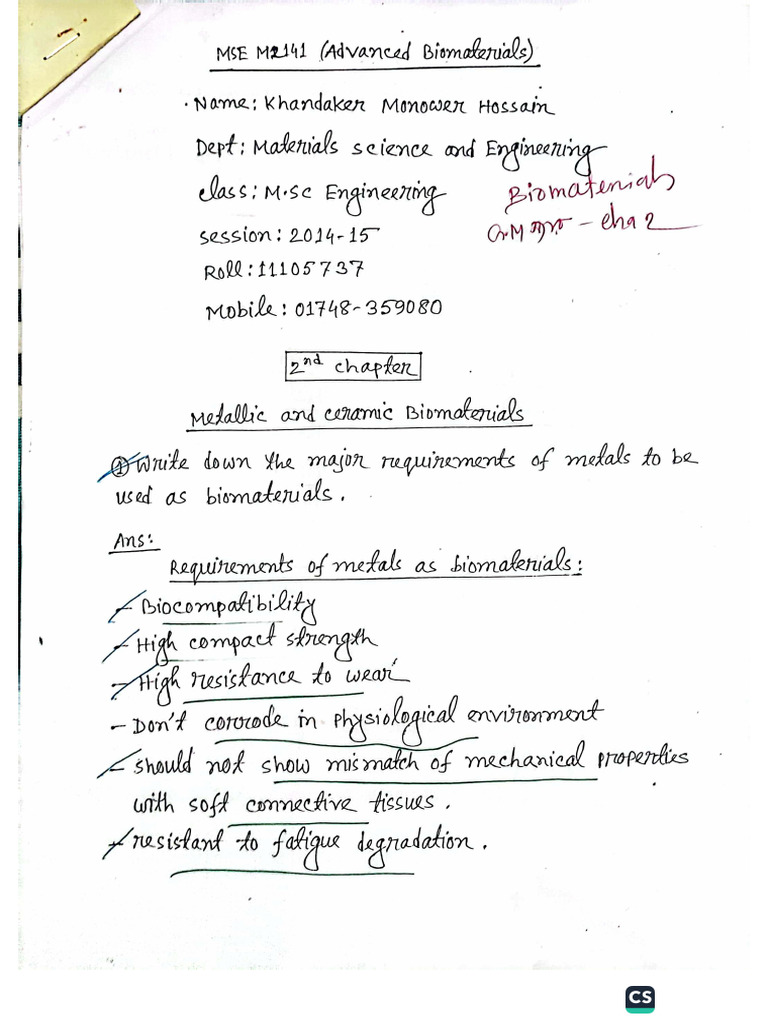 MSE M2141 (Advanced Biomaterials)
Name: Khandaker Monower Hossain
Dept: Materials science and Engineering
class: M.sc Engineering
Biomaterials
session: 2014-15
- cha 2
Roll: 11105737
Mobile: 01748-359080
2nd chapter
Metallic and ceramic Biomaterials
① Write down the major requirements of metals to be
used as biomaterials.
Ans:
Requirements of metals as biomaterials:
- Biocompatibility
- High compact strength
- High resistance to wear
- Don't corrode in physiological environment
- should not show mismatch of mechanical properties
with soft connective tissues.
- resistant to fatigue degradation.
CS